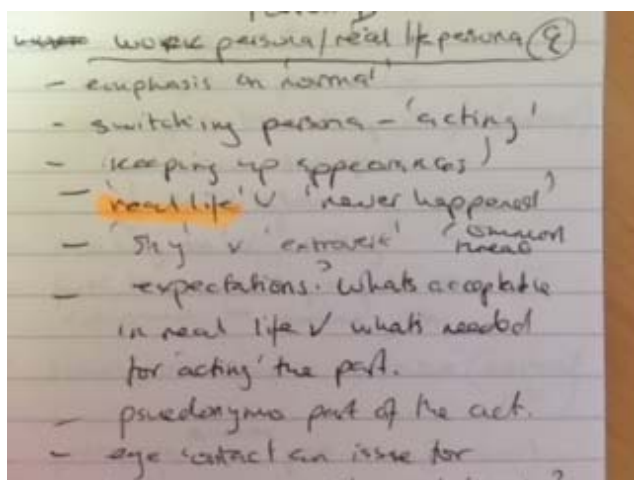 Person B
work persona/real life persona (9)
- emphasis on 'normal'
- switching persona - 'acting'
- 'keeping up appearances'
- 'real life' v 'never happened'
- 'shy' v 'extrovert' (common thread
- expectations? whats acceptable
in real life v whats needed
for 'acting' the part.
- psuedonyms part of the act.
- eye contact an issue for